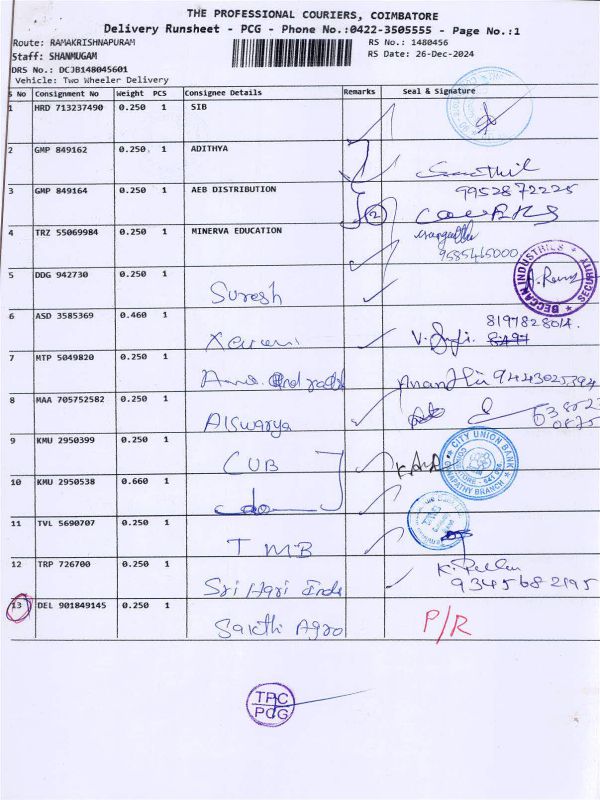 THE PROFESSIONAL COURIERS, COIMBATORE
Delivery Runsheet - PCG - Phone No.:0422-3505555 - Page No.:1
Route: RAMAKRISHNAPURAM RS No.: 1480456
Staff: SHANMUGAM RS Date: 26-Dec-2024
DRS No.: DCJB148045601
Vehicle: Two Wheeler Delivery
S No Consignment No Weight PCS Consignee Details Remarks Seal & Signature
1 HRD 713237490 0.250 1 SIB
2 GMP 849162 0.250 1 ADITHYA
3 GMP 849164 0.250 1 AEB DISTRIBUTION 9952872225
2
4 TRZ 55069984 0.250 1 MINERVA EDUCATION
9585465000
5 DDG 942730 0.250 1 Suresh
BEGGAN INDUSTRIES SECURITY
6 ASD 3585369 0.460 1 8197828014
7 MTP 5049820 0.250 1 9443025394
8 MAA 705752582 0.250 1 Aiswarya
9 KMU 2950399 0.250 1 CUB
CITY UNION BANK
GANAPATHY BRANCH
10 KMU 2950538 0.660 1
11 TVL 5690707 0.250 1 TMB
12 TRP 726700 0.250 1 Sri Hari
9345682195
13 DEL 901849145 0.250 1 Sakthi Agro P/R
TPC
PCG